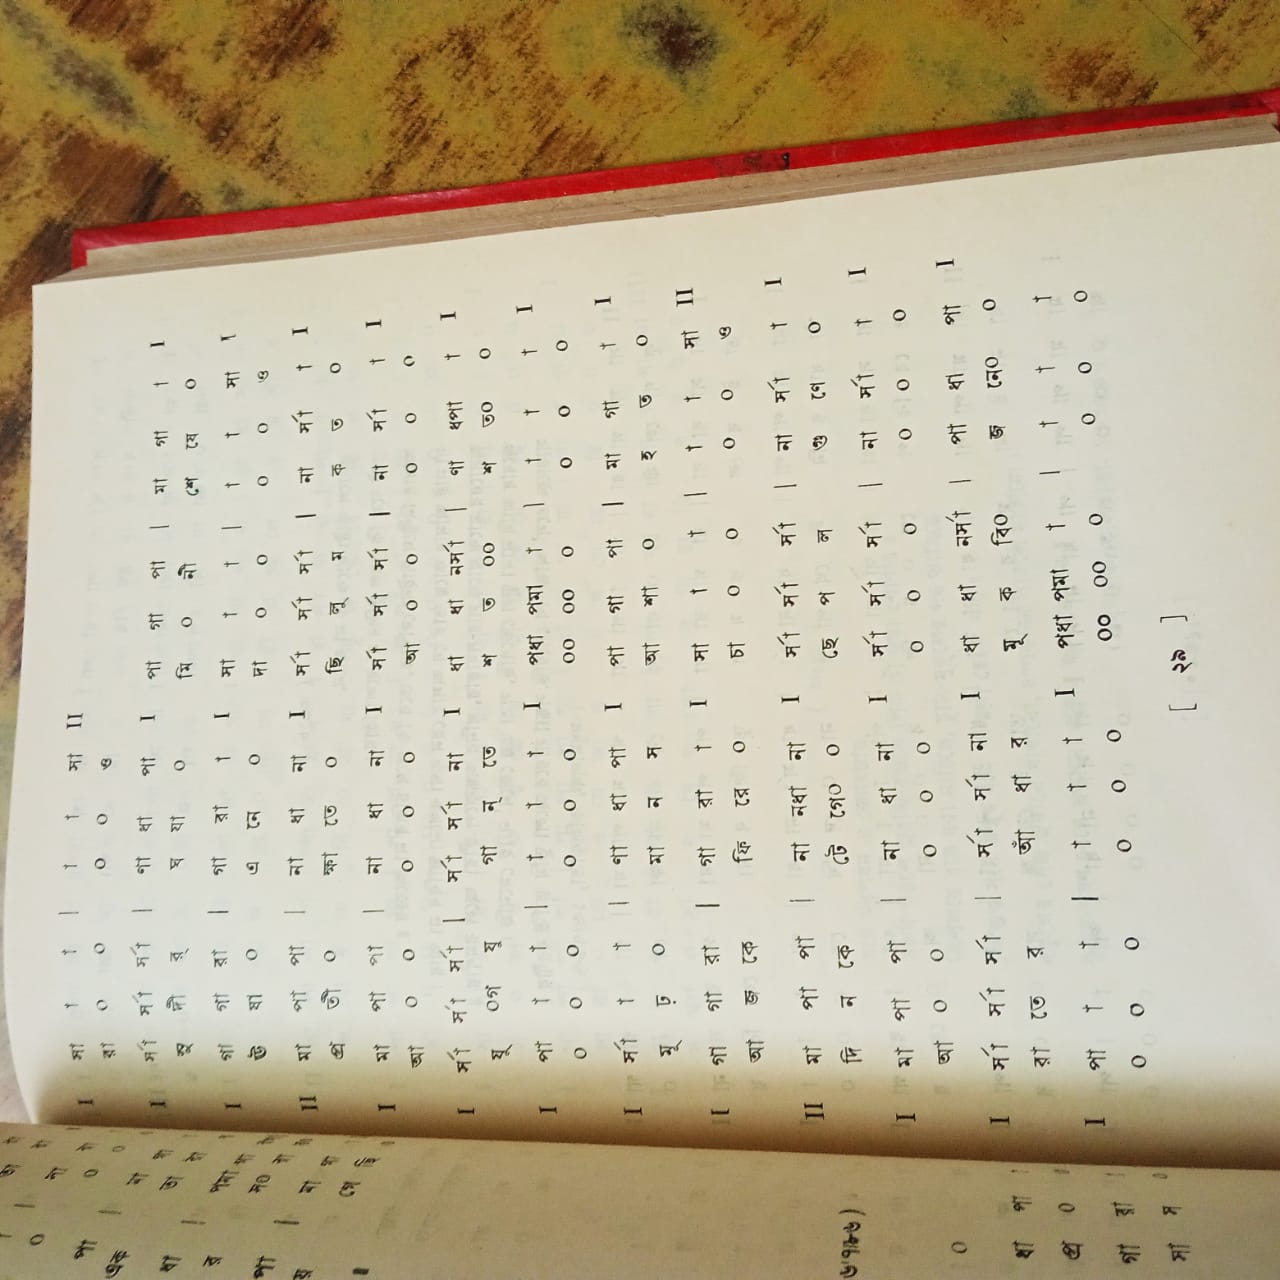 I সা া া | া া সা II
রা ০ ০ ০ ০ ও
I র্সা র্সা র্সা | ণা ধা পা I পা গা পা | মা গা া I
সু দী র্ ঘ যা ০ মি ০ নী শে যে ০
I গা গা রা | গা রা া I সা া া | া া সা I
উ ষা ০ এ নে ০ দা ০ ০ ০ ০ ও
II মা পা পা | না ধা না I র্সা র্সা র্সা | না র্সা া I
প্র তী ০ ক্ষা তে ০ ছি লূ ম ক ত ০
I মা পা পা | না ধা না I র্সা র্সা র্সা | না র্সা া I
আ ০ ০ ০ ০ ০ আ ০ ০ ০ ০ ০
I র্সা র্সা র্সা | র্সা র্সা না I ধা ধা নর্সা | ণা ধপা া I
যু ০গ যু গা ন্ তে শ ত ০০ শ ত০ ০
I পা া া | া া া I পধা পমা া | া া া I
০ ০ ০ ০ ০ ০ ০০ ০০ ০ ০ ০ ০
I র্সা া া | ণা ধা পা I পা গা পা | মা গা া I
মূ ঢ় ০ মা ন স আ শা ০ হ ত ০
II গা গা রা | গা রা া I সা া া | া া সা II
আ জ কে ফি রে ০ চা ০ ০ ০ ০ ও
II মা পা পা | না নধা না I র্সা র্সা র্সা | না র্সা া I
দি ন কে টে গে০ ০ ছে প ল গু ণে ০
I মা পা পা | না ধা না I র্সা র্সা র্সা | না র্সা া I
আ ০ ০ ০ ০ ০ ০ ০ ০ ০ ০ ০
I র্সা র্সা র্সা | র্সা র্সা না I ধা ধা নর্সা | পা ধা পা I
রা তে র আঁ ধা র মূ ক বি০ জ নে০ ০
I পা া া | া া া I পধা পমা া | া া া
০ ০ ০ ০ ০ ০ ০০ ০০ ০ ০ ০
[ ২৯ ]